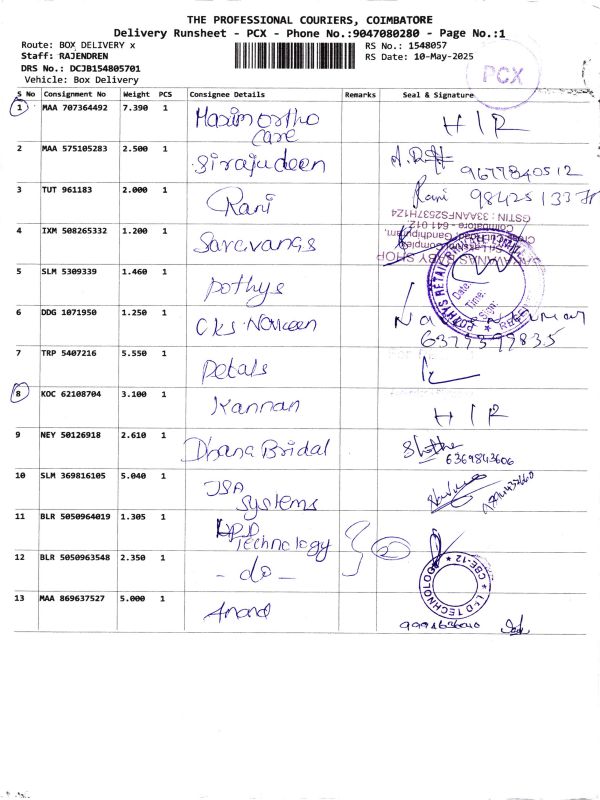 THE PROFESSIONAL COURIERS, COIMBATORE
Delivery Runsheet - PCX - Phone No.:9047080280 - Page No.:1
Route: BOX DELIVERY x
Staff: RAJENDREN
DRS No.: DCJB154805701
Vehicle: Box Delivery
RS No.: 1548057
RS Date: 10-May-2025
PCX
S No Consignment No Weight PCS Consignee Details Remarks Seal & Signature
1 MAA 707364492 7.390 1 Maxim ortho care H I R
2 MAA 575105283 2.500 1 Sirajudeen 9677840512
3 TUT 961183 2.000 1 Rani Rani
GSTIN : 33AANFS2537H1Z4
4 IXM 508265332 1.200 1 Saravanas
5 SLM 5309339 1.460 1 Pothys
6 DDG 1071950 1.250 1 CKS Naveen 6379399835
7 TRP 5407216 5.550 1 Petals
8 KOC 62108704 3.100 1 Kannan H I R
9 NEY 50126918 2.610 1 Dhana Bridal 6369843606
10 SLM 369816105 5.040 1 JSA Systems
11 BLR 5050964019 1.305 1 Technology 2
12 BLR 5050963548 2.350 1 - do -
CBE-12
13 MAA 869637527 5.000 1 Anand